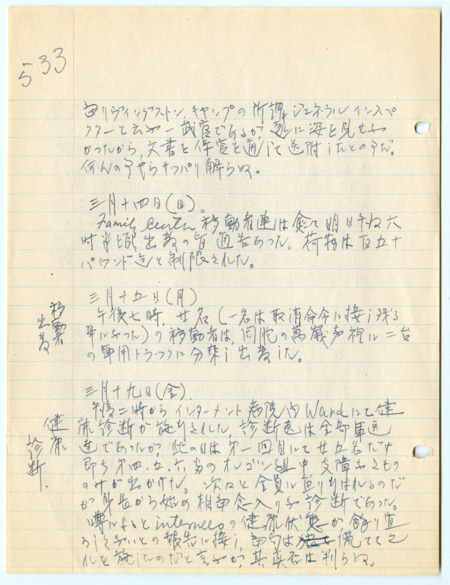 533
由リヴィングストン、キャンプの所謂ジェネラル、インスペ
クターと云ふ一武官であるが
かつたから、文書を保管を通じて送附したとの事だ。
何んの事やらサッパリ解らぬ。
三月十四日(日)。
Family Center 移動者連は愈々明日午后六
時半頃出発の旨通告あつた。荷物は百五十
パウンド迄と制限された。
移動
出発
三月十五日(月)
午后七時、廿名(一名は取消命令に接し残る
事になつた)の移動者は、同胞の萬歳声裡に二台
の軍用トラックに分乗し出発した。
健康
診断.
三月十九日(金).
午后二時からインターメント病院内Wardにて健
康診断が施行された。診断医は全部軍医
であつたが、此の日は第一回目にて廿五名だけ
即ち第四、五、六号のオレゴン組中支障なきもの
のみが出かけた。次々と全員に及ぼされるのだ
が身長から始め相当念入りな診断であつた。
噂によるとinterneesの健康状態が余り良
ろしくないとの報告に接し、当局は慌ててこ
れを施したのだと云ふが其真否は判らぬ。